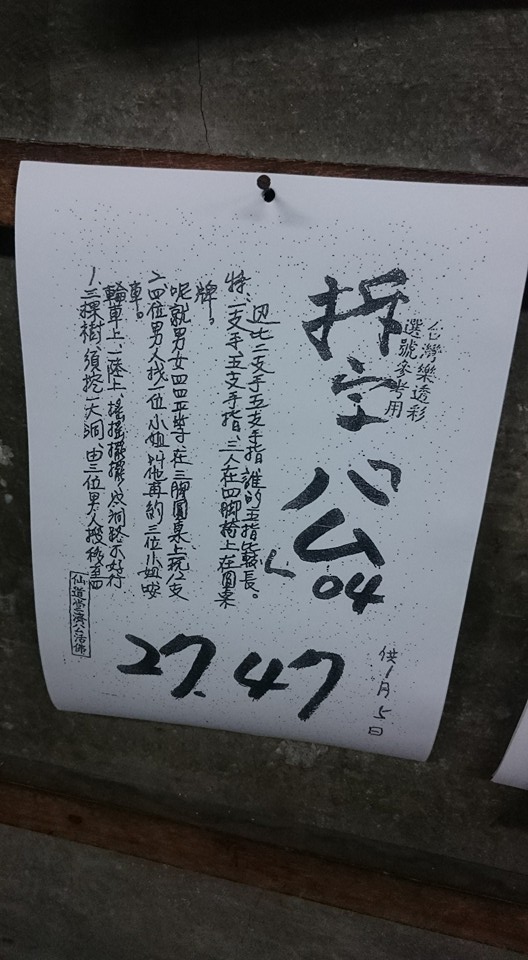 台灣樂透彩
選號參考用
拆字公
04
供1月5日
比二支手五支手指誰的五指較長。
特、一支手、五支手指、三人在四脚椅上在圓桌
牌。
呢就男女四四平等在三脚圓桌上玩12支
二四位男人找一位小姐叫他再約三位小姐
車。
輪車上一陸上、搖搖擺擺、成洞路不好行
1三棵樹、須挖一大洞、由三位男人移
仙道堂濟公活佛
27.47